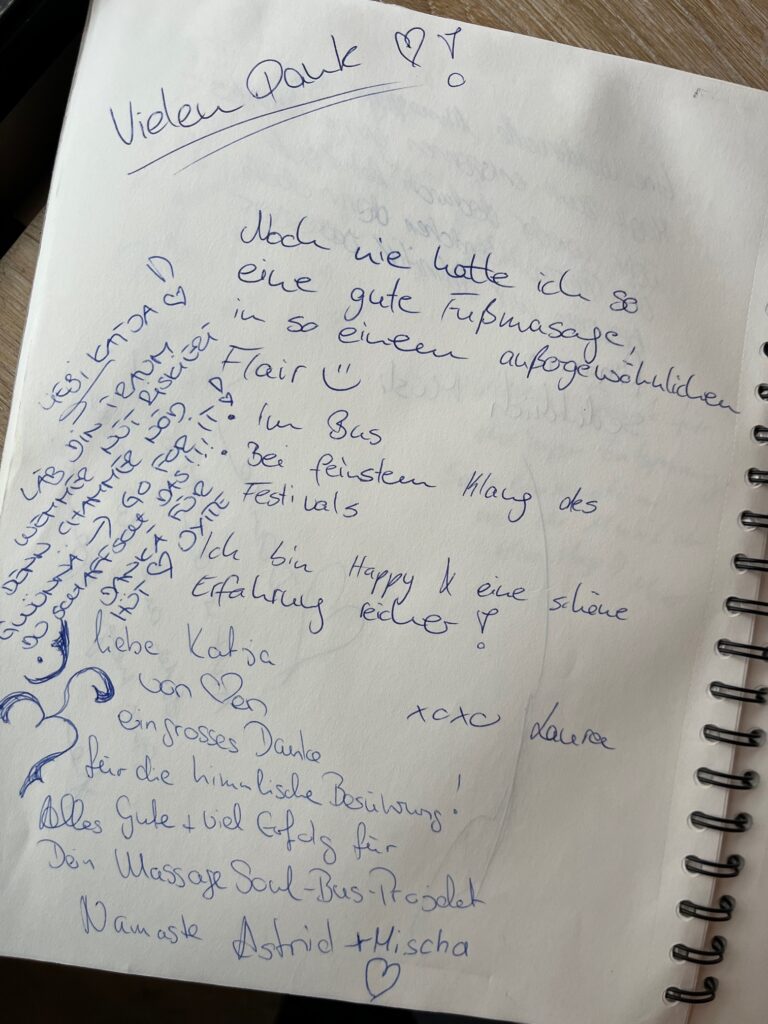 Vielen Dank ♡!
Noch nie hatte ich so
eine gute Fußmasage,
in so einem außogewöhnlichen
Flair ☺
• Im Bus
• Bei feinstem Klang des
Festivals
Ich bin Happy & eine schöne
Erfahrung reicher!
xoxo Laura
LIEBI KATJA ♡
LÄB DIN TRAUM
WEMMER NÜT RISKIERT
DENN CHAMMER NÖD
GWÜNNA → GO FOR IT!
DU SCHAFFSCH DAS!!!
DANKÄ FÜR
HÜT ♡
liebe Katja
von ♡en
ein grosses Danke
für die himmlische Berührung!
Alles Gute + viel Erfolg für
Dein Massage Soul-Bus-Projekt
Namaste Astrid + Mischa
♡